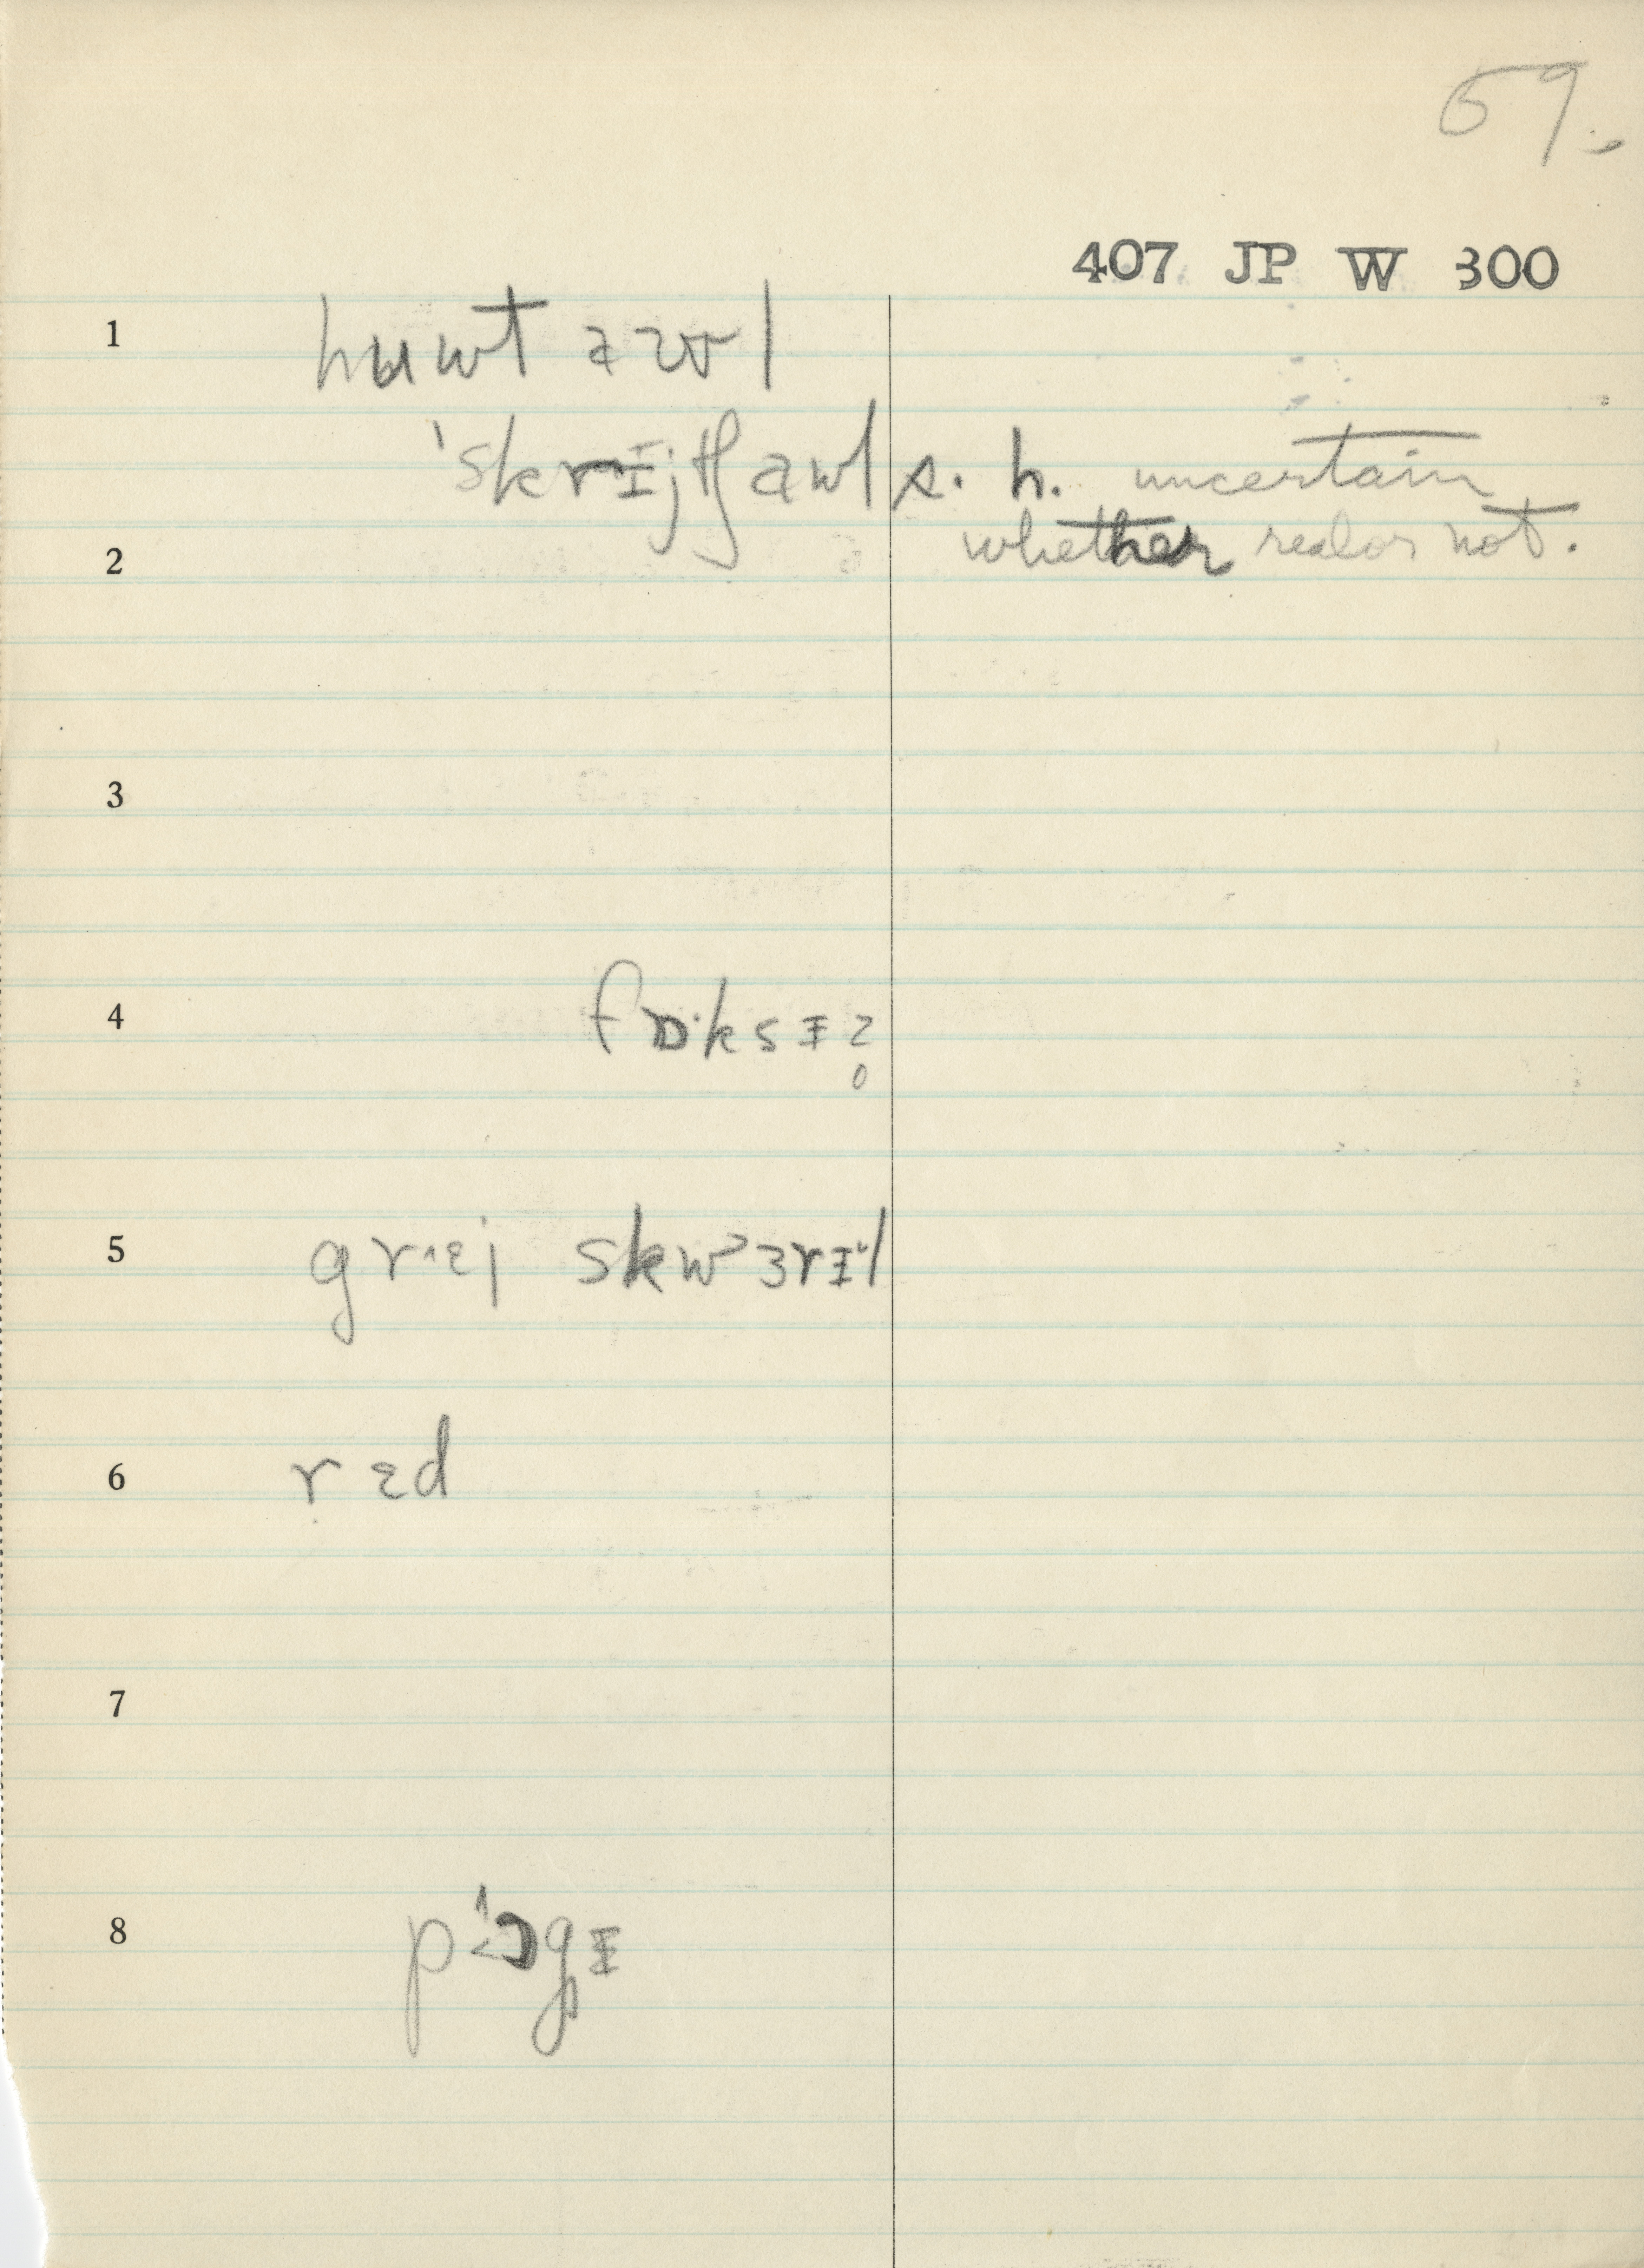 59.
407 JP W 300
1 hʉwt aʊl
'skrɪjtʃ awl s. h. uncertain
2 whether real or not.
3
4 fɒ·ksɪz̥
5 gr˄ɛj skwɜrɪl
6 rɛd
7
8 pɔgɪ